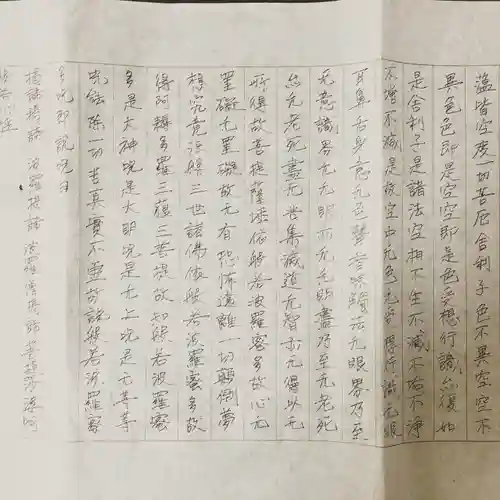 蕴皆空度一切苦厄舍利子色不異空空不
異色色即是空空即是色受想行識亦復如
是舍利子是諸法空相不生不滅不垢不淨
不增不減是故空中无色无受想行識无眼
耳鼻舌身意无色聲香味觸法无眼界乃至
无意識界无无明亦无无明盡乃至无老死
亦无老死盡无苦集滅道无智亦无得以无
所得故菩提薩埵依般若波羅蜜多故心无
罣礙无罣礙故无有恐怖遠離一切顛倒夢
想究竟涅槃三世諸佛依般若波羅蜜多故
得阿耨多羅三藐三菩提故知般若波羅蜜
多是大神咒是大明咒是无上咒是无等等
咒能除一切苦真實不虛故說般若波羅蜜
多咒即說咒曰
揭諦揭諦 波羅揭諦 波羅僧揭諦 菩提娑婆訶